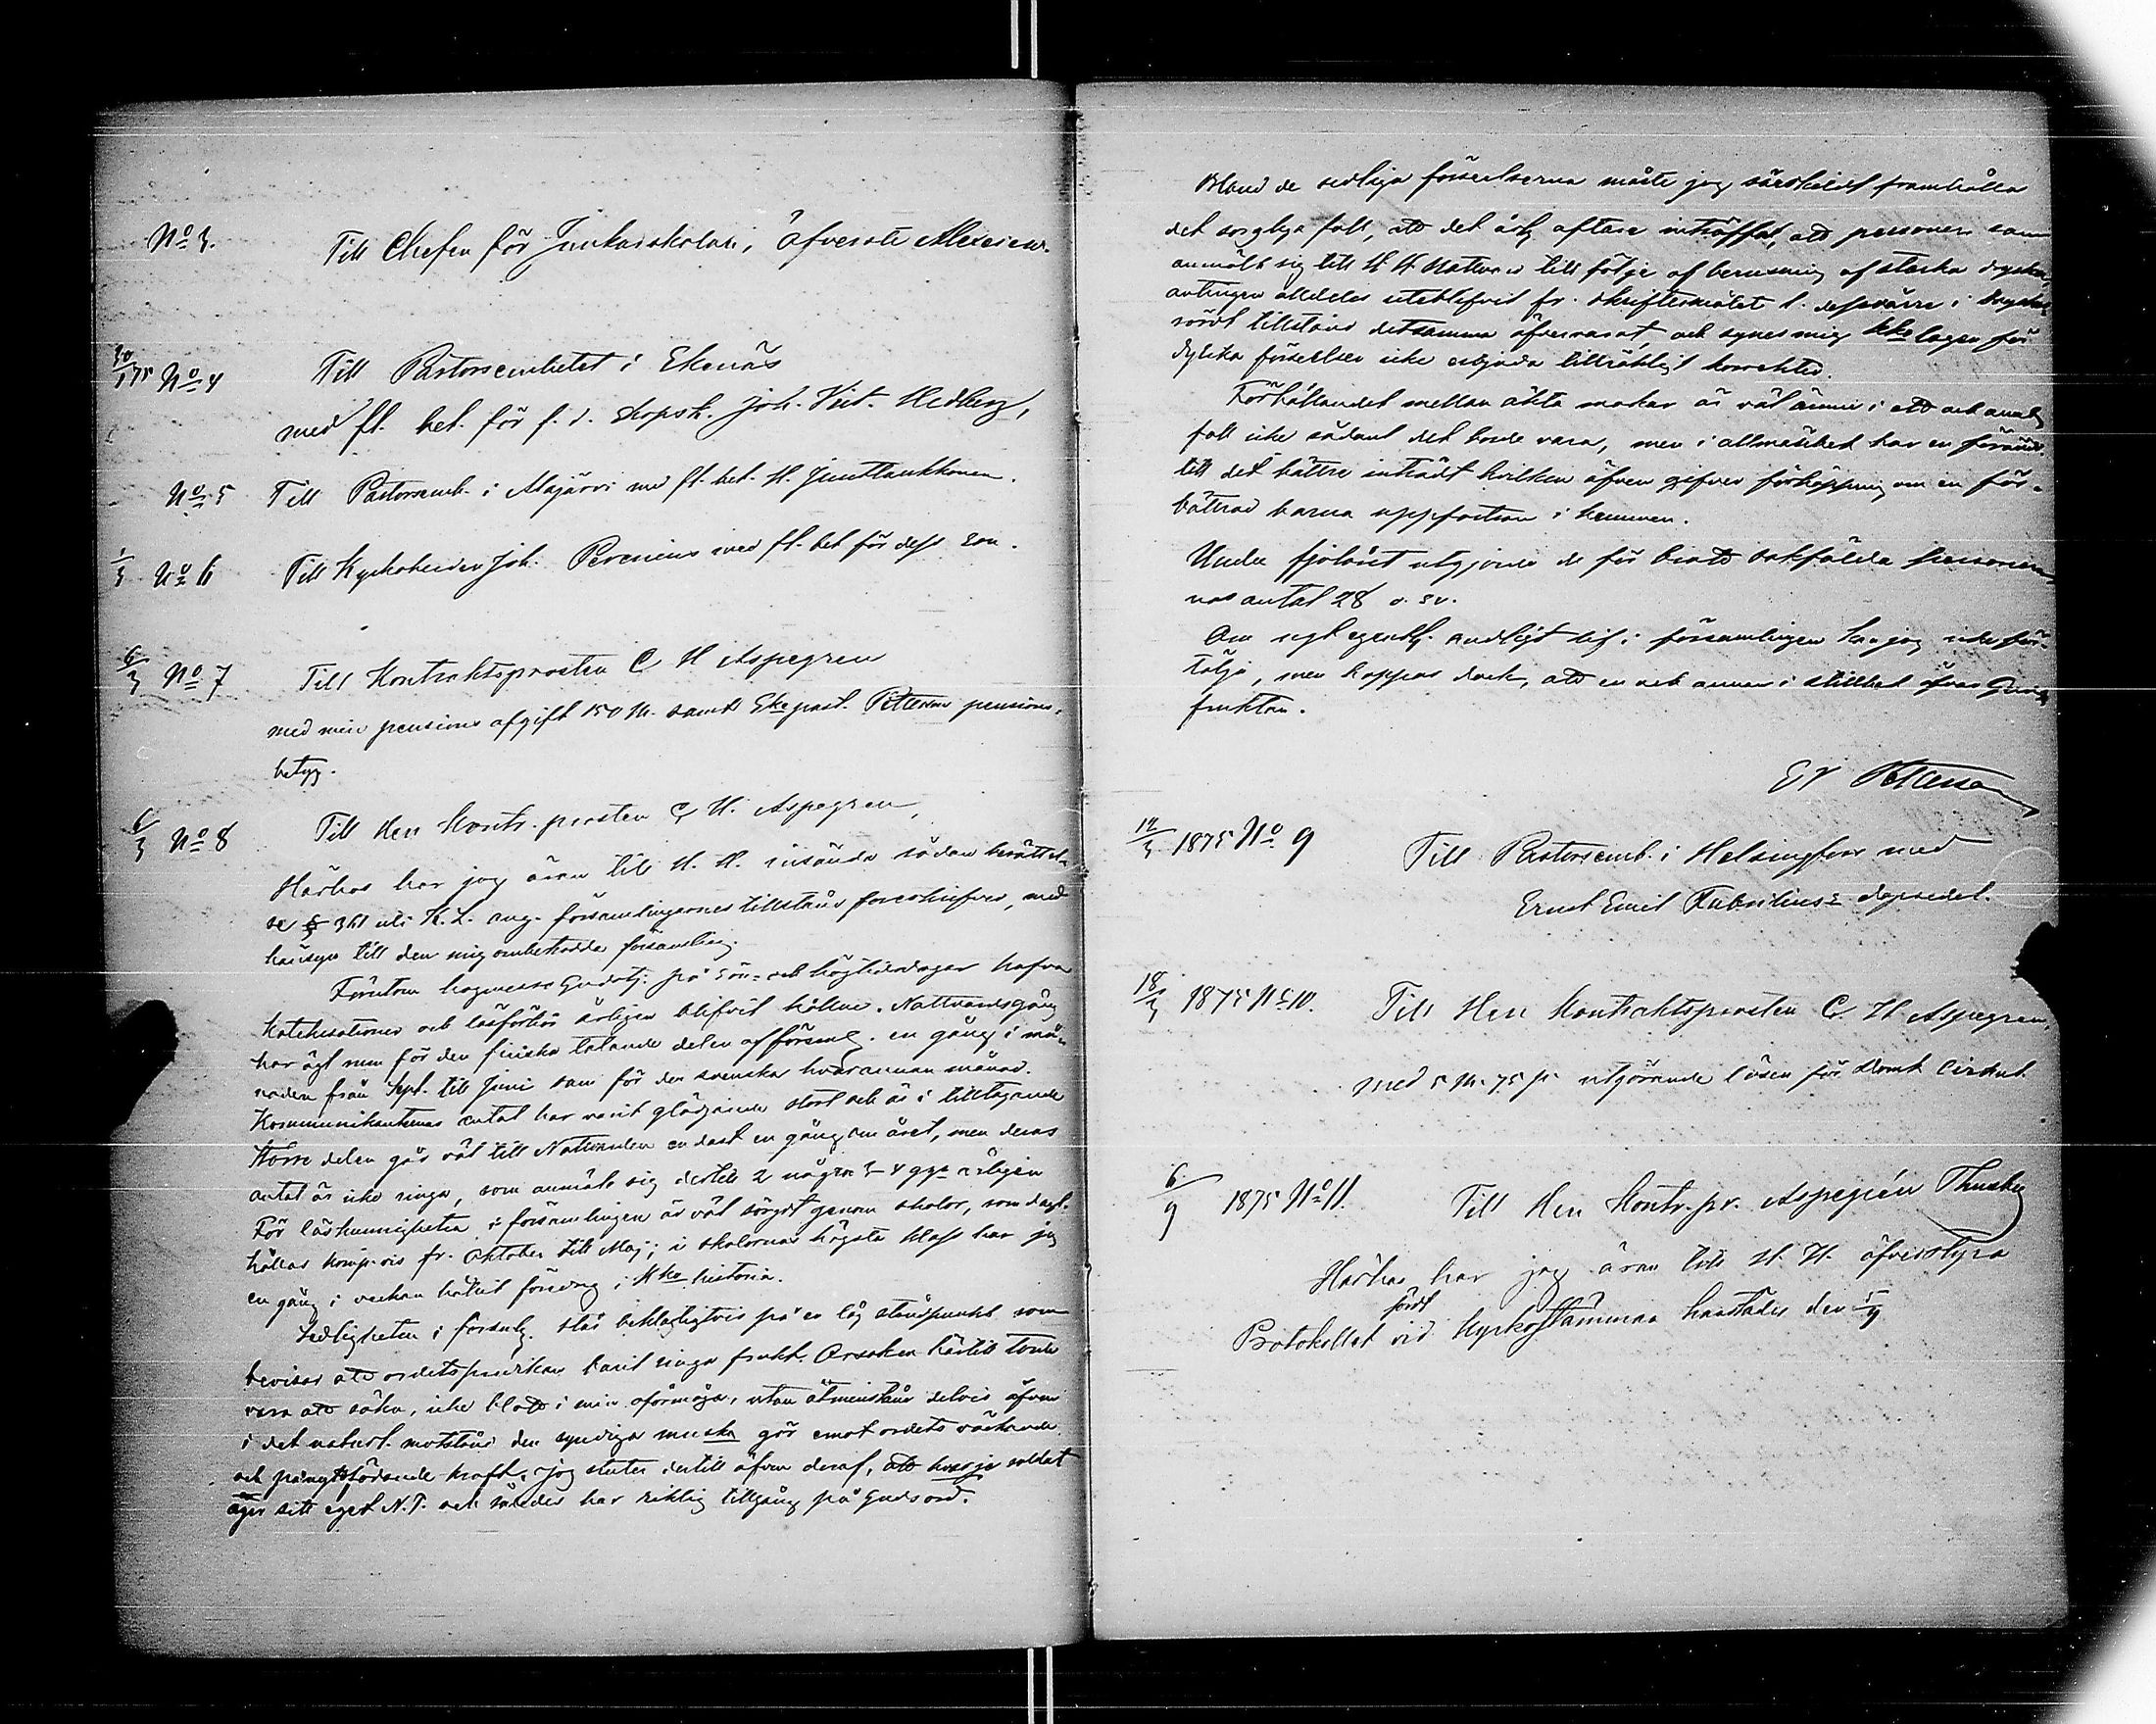 No 3. Till Chefen för Junkarskolan, öfverste Alexeiew.
30/1 75 No 4 Till Pastorsembetet i Ekenäs
med fl. bet. för f. d. skepsk. Joh. Vict. Hedberg,
No 5 Till Pastorsemb. i Alajärvi med fl. bet. H.
1/3 No 6 Till Kyrkoherden Joh. Perenius med fl. bet för dess son.
6/3 No 7 Till Kontraktsprosten C H Aspegren
med min pensions afgift 150 M. samt Eke past. Petterss pensions-
betyg.
6/3 No 8 Till Herr Kontr. prosten C H. Aspegren,
Härhos har jag äran till H. H. insända sådan berättel-
se § 361 uti K. L. ang. församlingarnes tillstånd föreskrifver, med
hänsyn till den mig ombetrodda församling.
Förutom högmesso Gudstj. på sön- och högtidsdagar hafva
Katekesationer och läsförhör årligen blifvit hållne. Nattvardsgång
har ägt rum för den finska talande delen af försml. en gång i må-
naden från Sept. till Juni samt för den svenska hvarannan månad.
Kommunikanternas antal har varit glädjande stort och är i tilltagande
Större delen går väl till Nattvarden endast en gång om året, men deras
antal är icke ringa, som anmäla sig dertill 2 några 3-4 ggr årligen
För läskunnigheten i församlingen är väl sörgdt genom skolor, som dagl.
hållas komp.vis fr. Oktober till Maj; i skolornas högsta klass har jag
en gång i veckan hållit föredrag i Kko historia.
Sedligheten i försmlg. står beklagligtvis på en låg ståndpunkt som
bevisar att ordets predikan burit ringa frukt. Orsaken härtill torde
vara att söka, icke blott i min oförmåga, utan åtminstone delvis äfven
i det naturl. motstånd den syndiga mnska gör emot ordets väckande
och pånyttfödande kraft, jag sluter dertill äfven deraf, att hvarje soldat
äger sitt eget N. T. och således har riklig tillgång på Guds ord.
Bland de sedliga förseelserna måste jag särskildt framhålla
det sorgliga fall, att det årl. oftare inträffat, att personer som
anmält sig till H H Nattvard till följe af berusning af starka drycker,
antingen alldeles uteblifvit fr. skriftermålet l. dessvärre i
rördt tillstånd detsamma öfvervarat, och synes mig kko lagen för
dylika förseelser icke erbjuda tillräckligt korrektiv.
Förhållandet mellan äkta makar är väl ännu i ett och annat
fall icke sådant det borde vara, men i allmänhet har en förändr.
till det bättre inträdt hvilken äfven gifver förhoppning om en för-
bättrad barna uppfostran i hemmen.
Under fjolåret utgjorde de för brott sakfälda personer-
nas antal 28 o. sv.
Om ngt egentl. andligt lif i församlingen kan jag icke för-
tälja, men hoppas dock, att en och annan i stillhet öfvas Guds
fruktan.
G V Petterson
12/3 1875 No 9 Till Pastorsemb. i Helsingfors med
Ernst Emil dopsedel.
18/3 1875 No 10. Till Herr Kontraktsprosten C. H Aspegren,
med 5 M. 75 p. utgörande lösen för Domk Cirkul.
6/9 1875 No 11. Till Herr Kontr. pr. Aspegrén Thusby
Härhos har jag äran till H. H. öfverstyra
fördt
Protokollet vid Kyrkostämman härstädes den 5/9